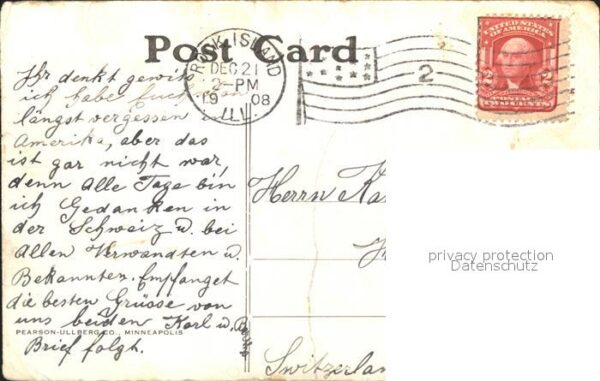 Post Card
ROCK ISLAND
DEC 21
2-PM
19 08
ILL.
2
UNITED STATES
OF AMERICA
2 2
POSTAGE
TWO CENTS
Ihr denkt gewiss
ich habe Euch
längst vergessen
Amerika, aber das
ist gar nicht war,
denn Alle Tage bin
ich Gedanken in
der Schweiz u. bei
Allen Verwandten u.
Bekannten. Empfanget
die besten Grüsse von
uns beiden Karl u.
PEARSON-ULLBERG CO., MINNEAPOLIS
Brief folgt.
Herrn Ka
Switzerla
privacy protection
Datenschutz